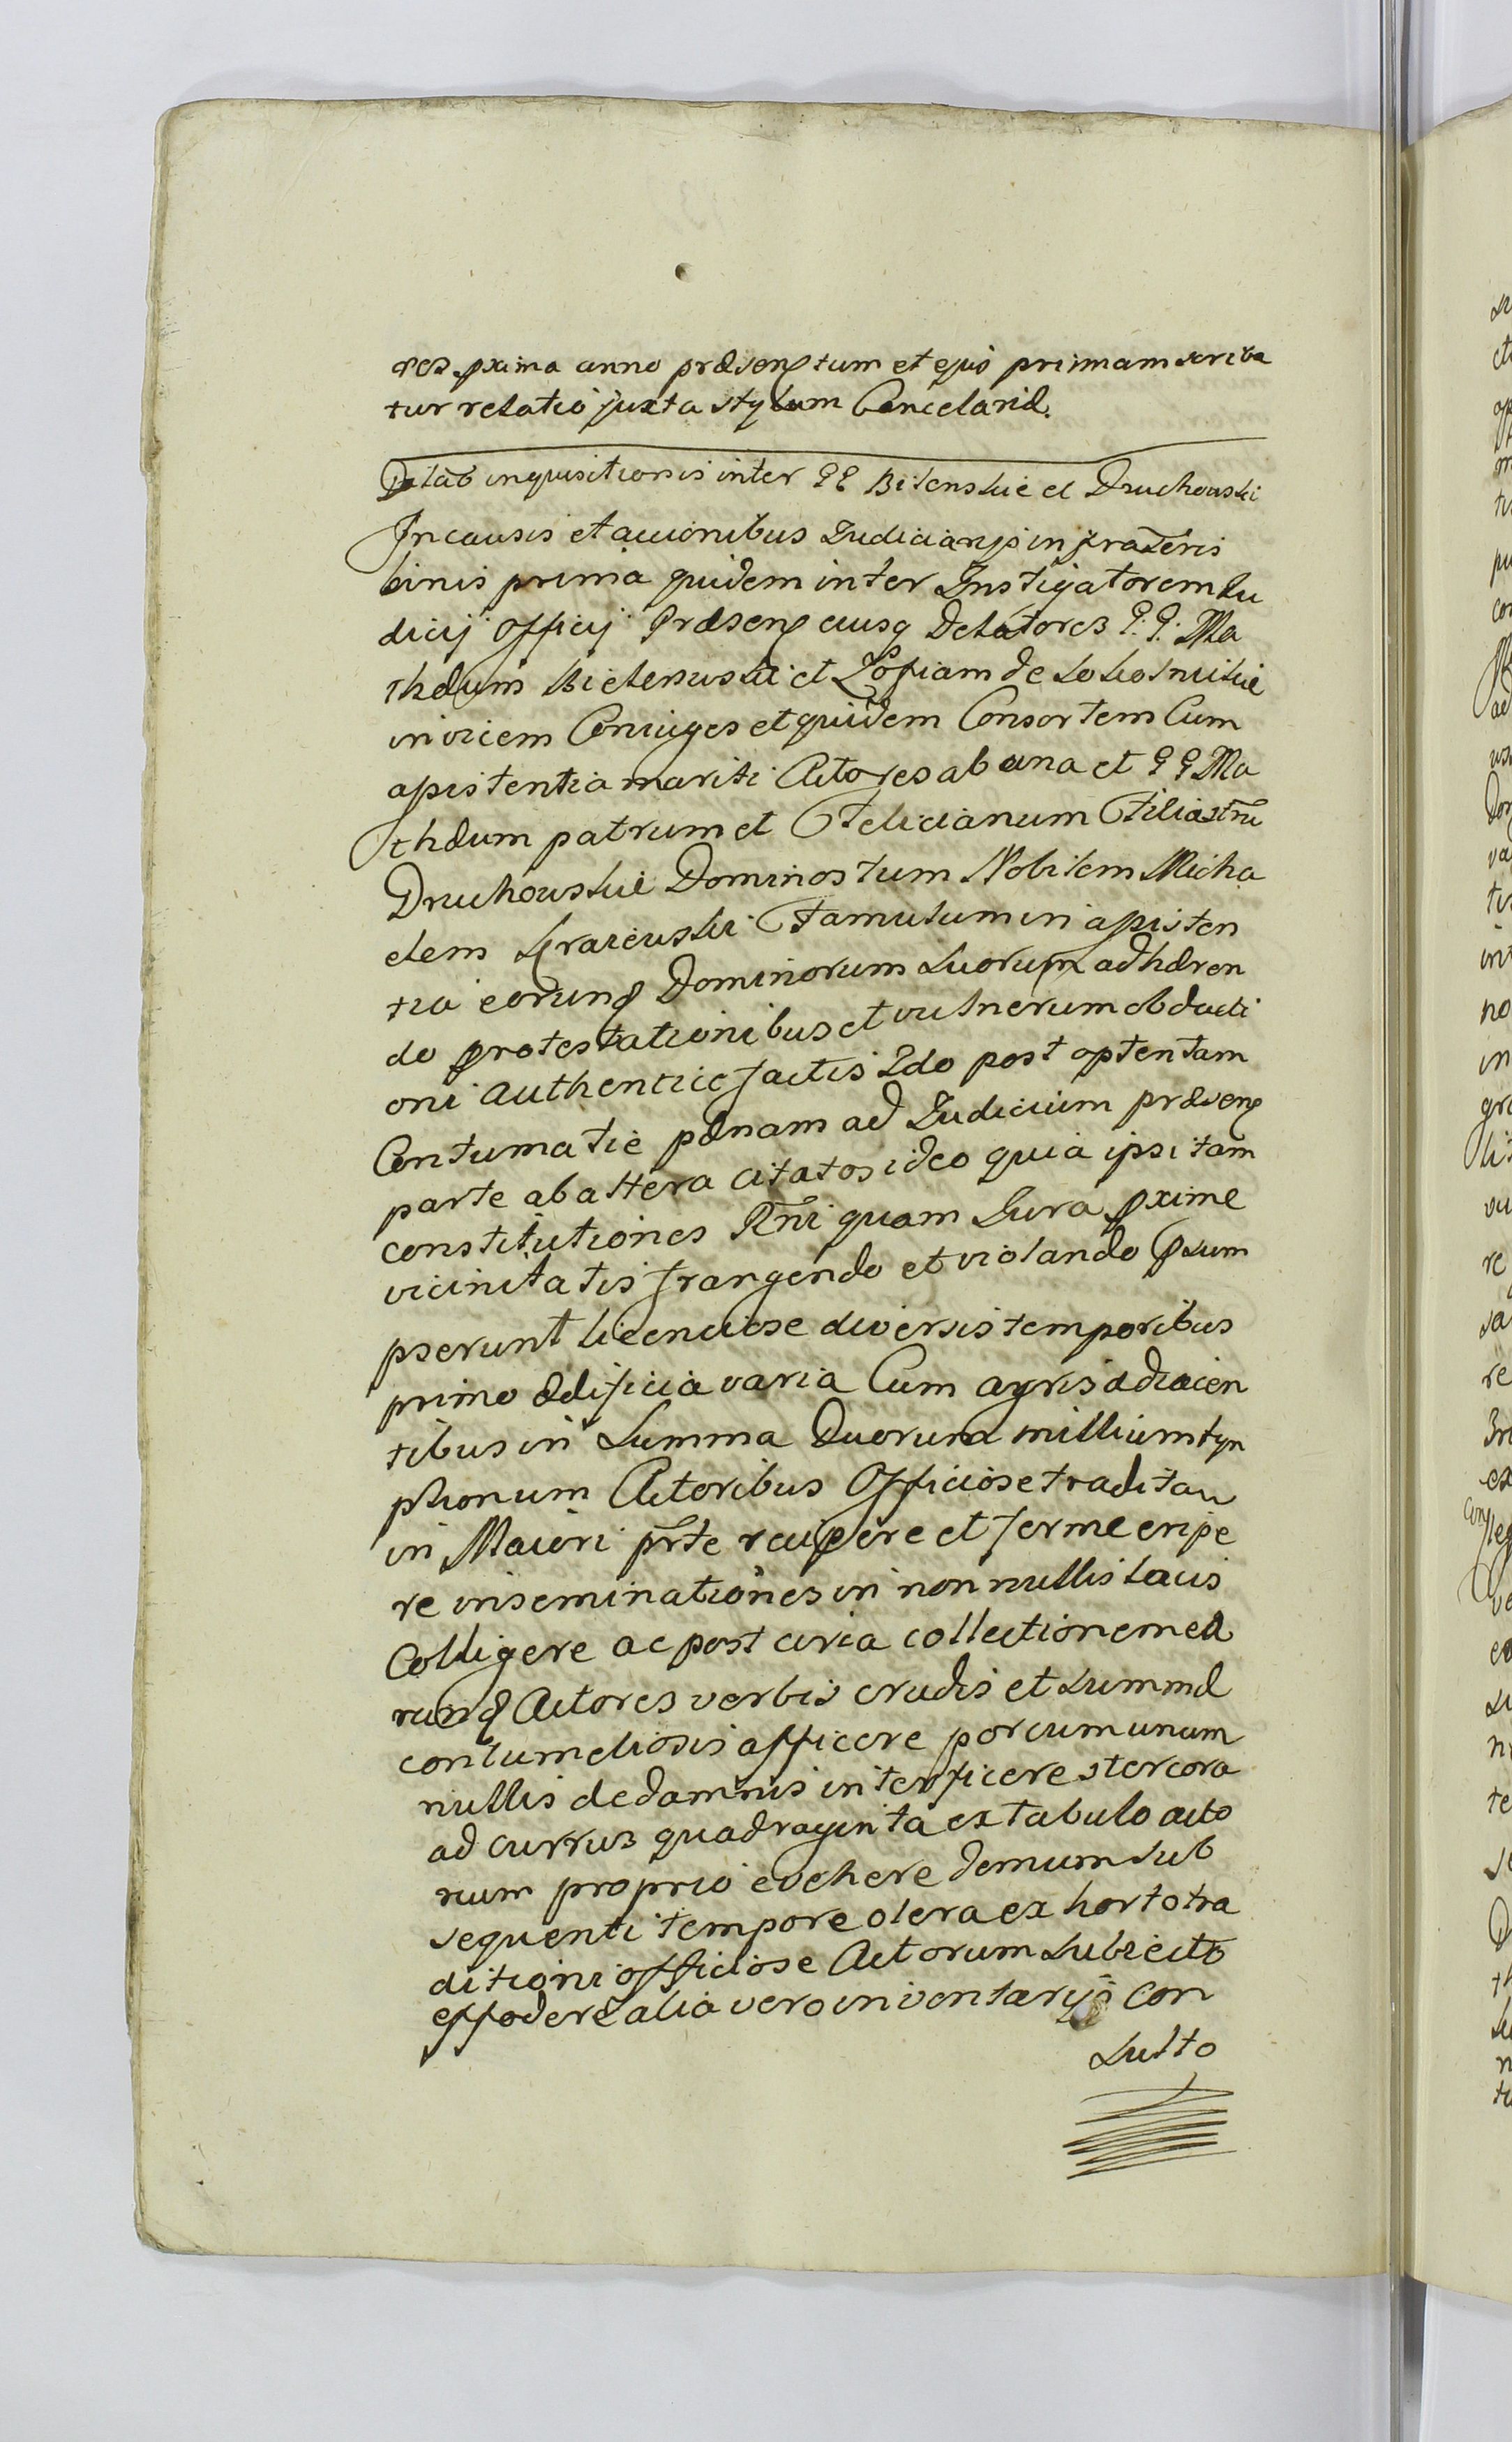 res pxima anno præsentum et ejus primam scriba
tur relatio juxta stylum Cancelariæ.
Delao inquisitionis inter GG Bilenskie et Druchowski
In causis et accionibus Judiciarijs infrascris
binis prima quidem inter Instigatorem Iu
dicij Officij Præsenς eiusq Delatores G: G: Ma
thæum Bielenski et Zofiam de
invicem Coniuges et quidem Consortem Cum
assistentia mariti Actores ab una et G G Ma
thæum patrum et Felicianum Filiastrū
Druchouskie Dominos tum Nobilem Micha
elem Kraieuski Famulum in assisten
tia eorunδ Dominorum Suorum adhæren
do protestationibus et vulnerum obducti
oni authentice factis Ido post optentam
Contumatiè pænam ad Judicium præsenς
parte ab altera citatos ideo quia ipsi tam
constitutiones Rni quam Jura pxime
vicinitatis frangendo et violando psum
pserunt licenciose diversis temporibus
primo ædificia varia Cum agris adiacen
tibus in Summa Duorum millium tyn
phonum Actoribus Officiose tradita
in Maiori prte recipere et ferme eripe
re inseminationes in non nullis locis
Colligere ac post circa collectionem ea
runδ Actores verbis crudis et summæ
contumeliosis afficere porcum unum
nullis de damnis interficere stercora
ad currus quadraginta ex tabulo acto
rum proprio evehere demum sub
sequenti tempore olera ex horto tra
ditioni officiose Actorum subiecto
effodere alia vero inventarijs con
sulto